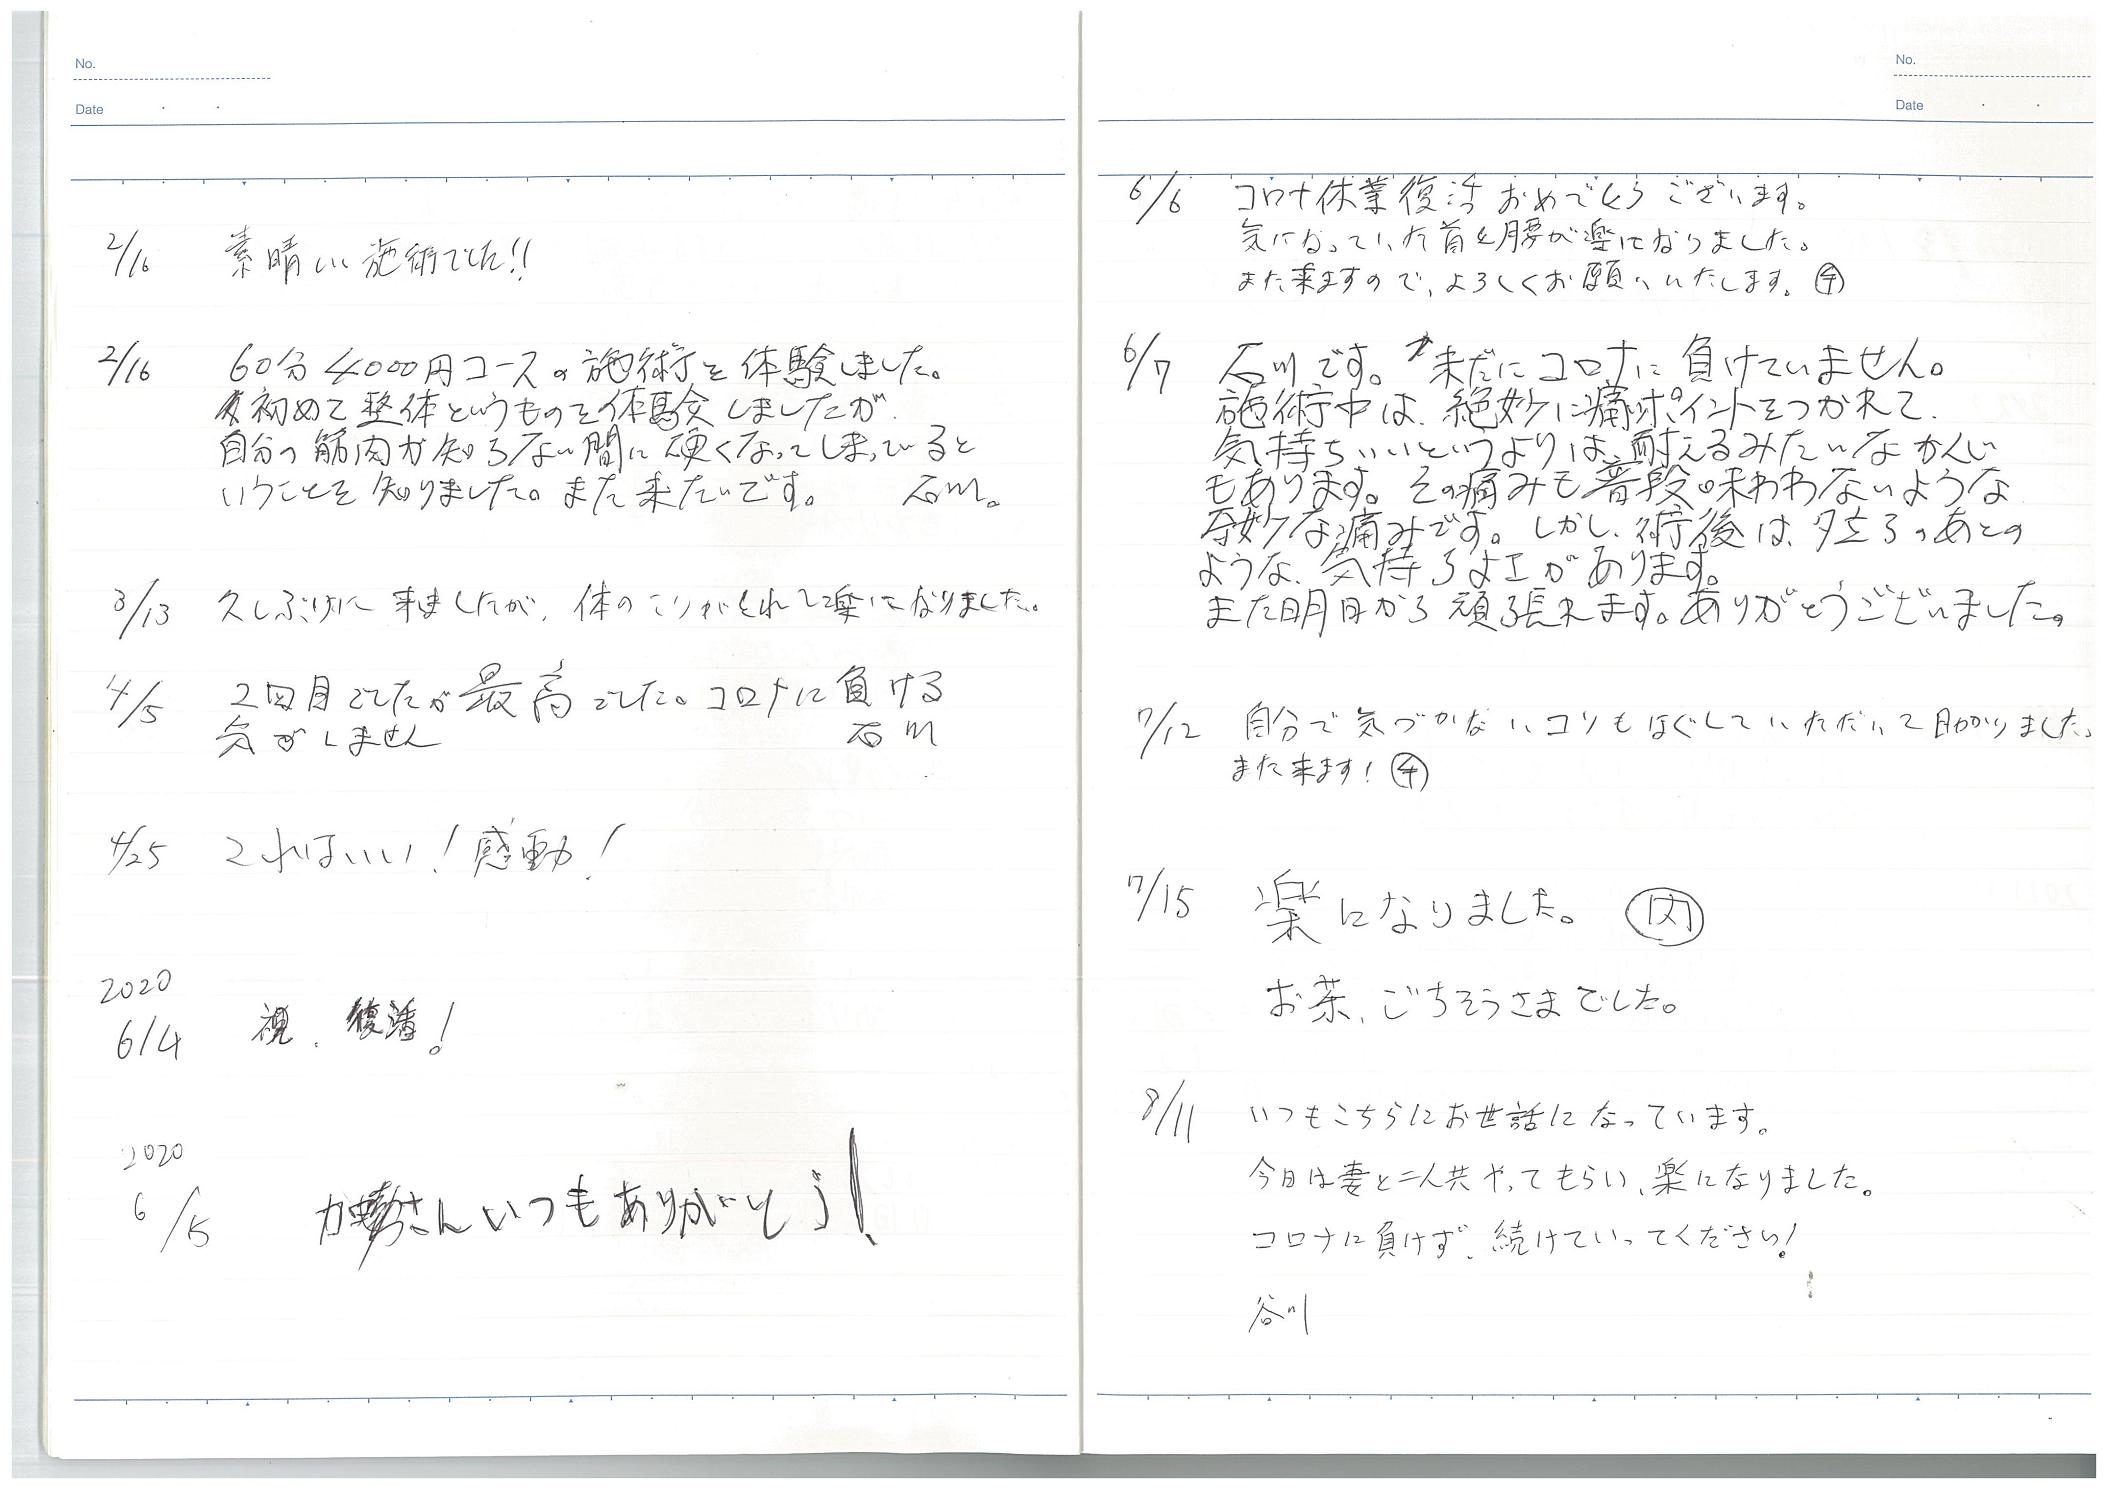 No.
Date
2/16 素晴しい施術でした!!
2/16 60分4000円コースの施術を体験しました。
初めて整体というものを体験しましたが、
自分の筋肉が知らない間に硬くなってしまっていると
いうことを知りました。また来たいです。 石川。
3/13 久しぶりに来ましたが、体のこりがとれて楽になりました。
4/5 2回目でしたが最高でした。コロナに負ける
気がしません 石川
4/25 これはいい!感動!
2020
6/4 祝、復活!
2020
6/5 さんいつもありがとう!
No.
Date
6/6 コロナ休業復活おめでとうございます。
気になっていた首と腰が楽になりました。
また来ますので、よろしくお願いいたします。
6/7 石川です。未だにコロナに負けていません。
施術中は、絶妙に痛いポイントをつかれて、
気持ちいいというよりは、耐えるみたいなかんじ
もあります。その痛みも普段味わわないような
奇妙な痛みです。しかし、術後は、夕立ちのあとの
ような、気持ちよさがあります。
また明日から頑張れます。ありがとうございました。
7/12 自分で気づかないコリもほぐしていただいて助かりました。
また来ます!
7/15 楽になりました。 内
お茶、ごちそうさまでした。
8/11 いつもこちらにお世話になっています。
今日は妻と二人共やってもらい、楽になりました。
コロナに負けず、続けていってください!
谷川